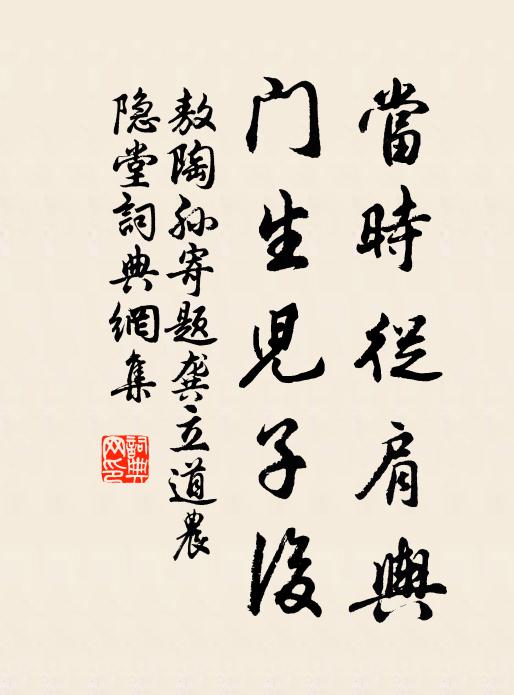 當時從肩輿
門生児子後
敖陶孙寄題龚立道農
隐堂詞典網集
詞典
网印